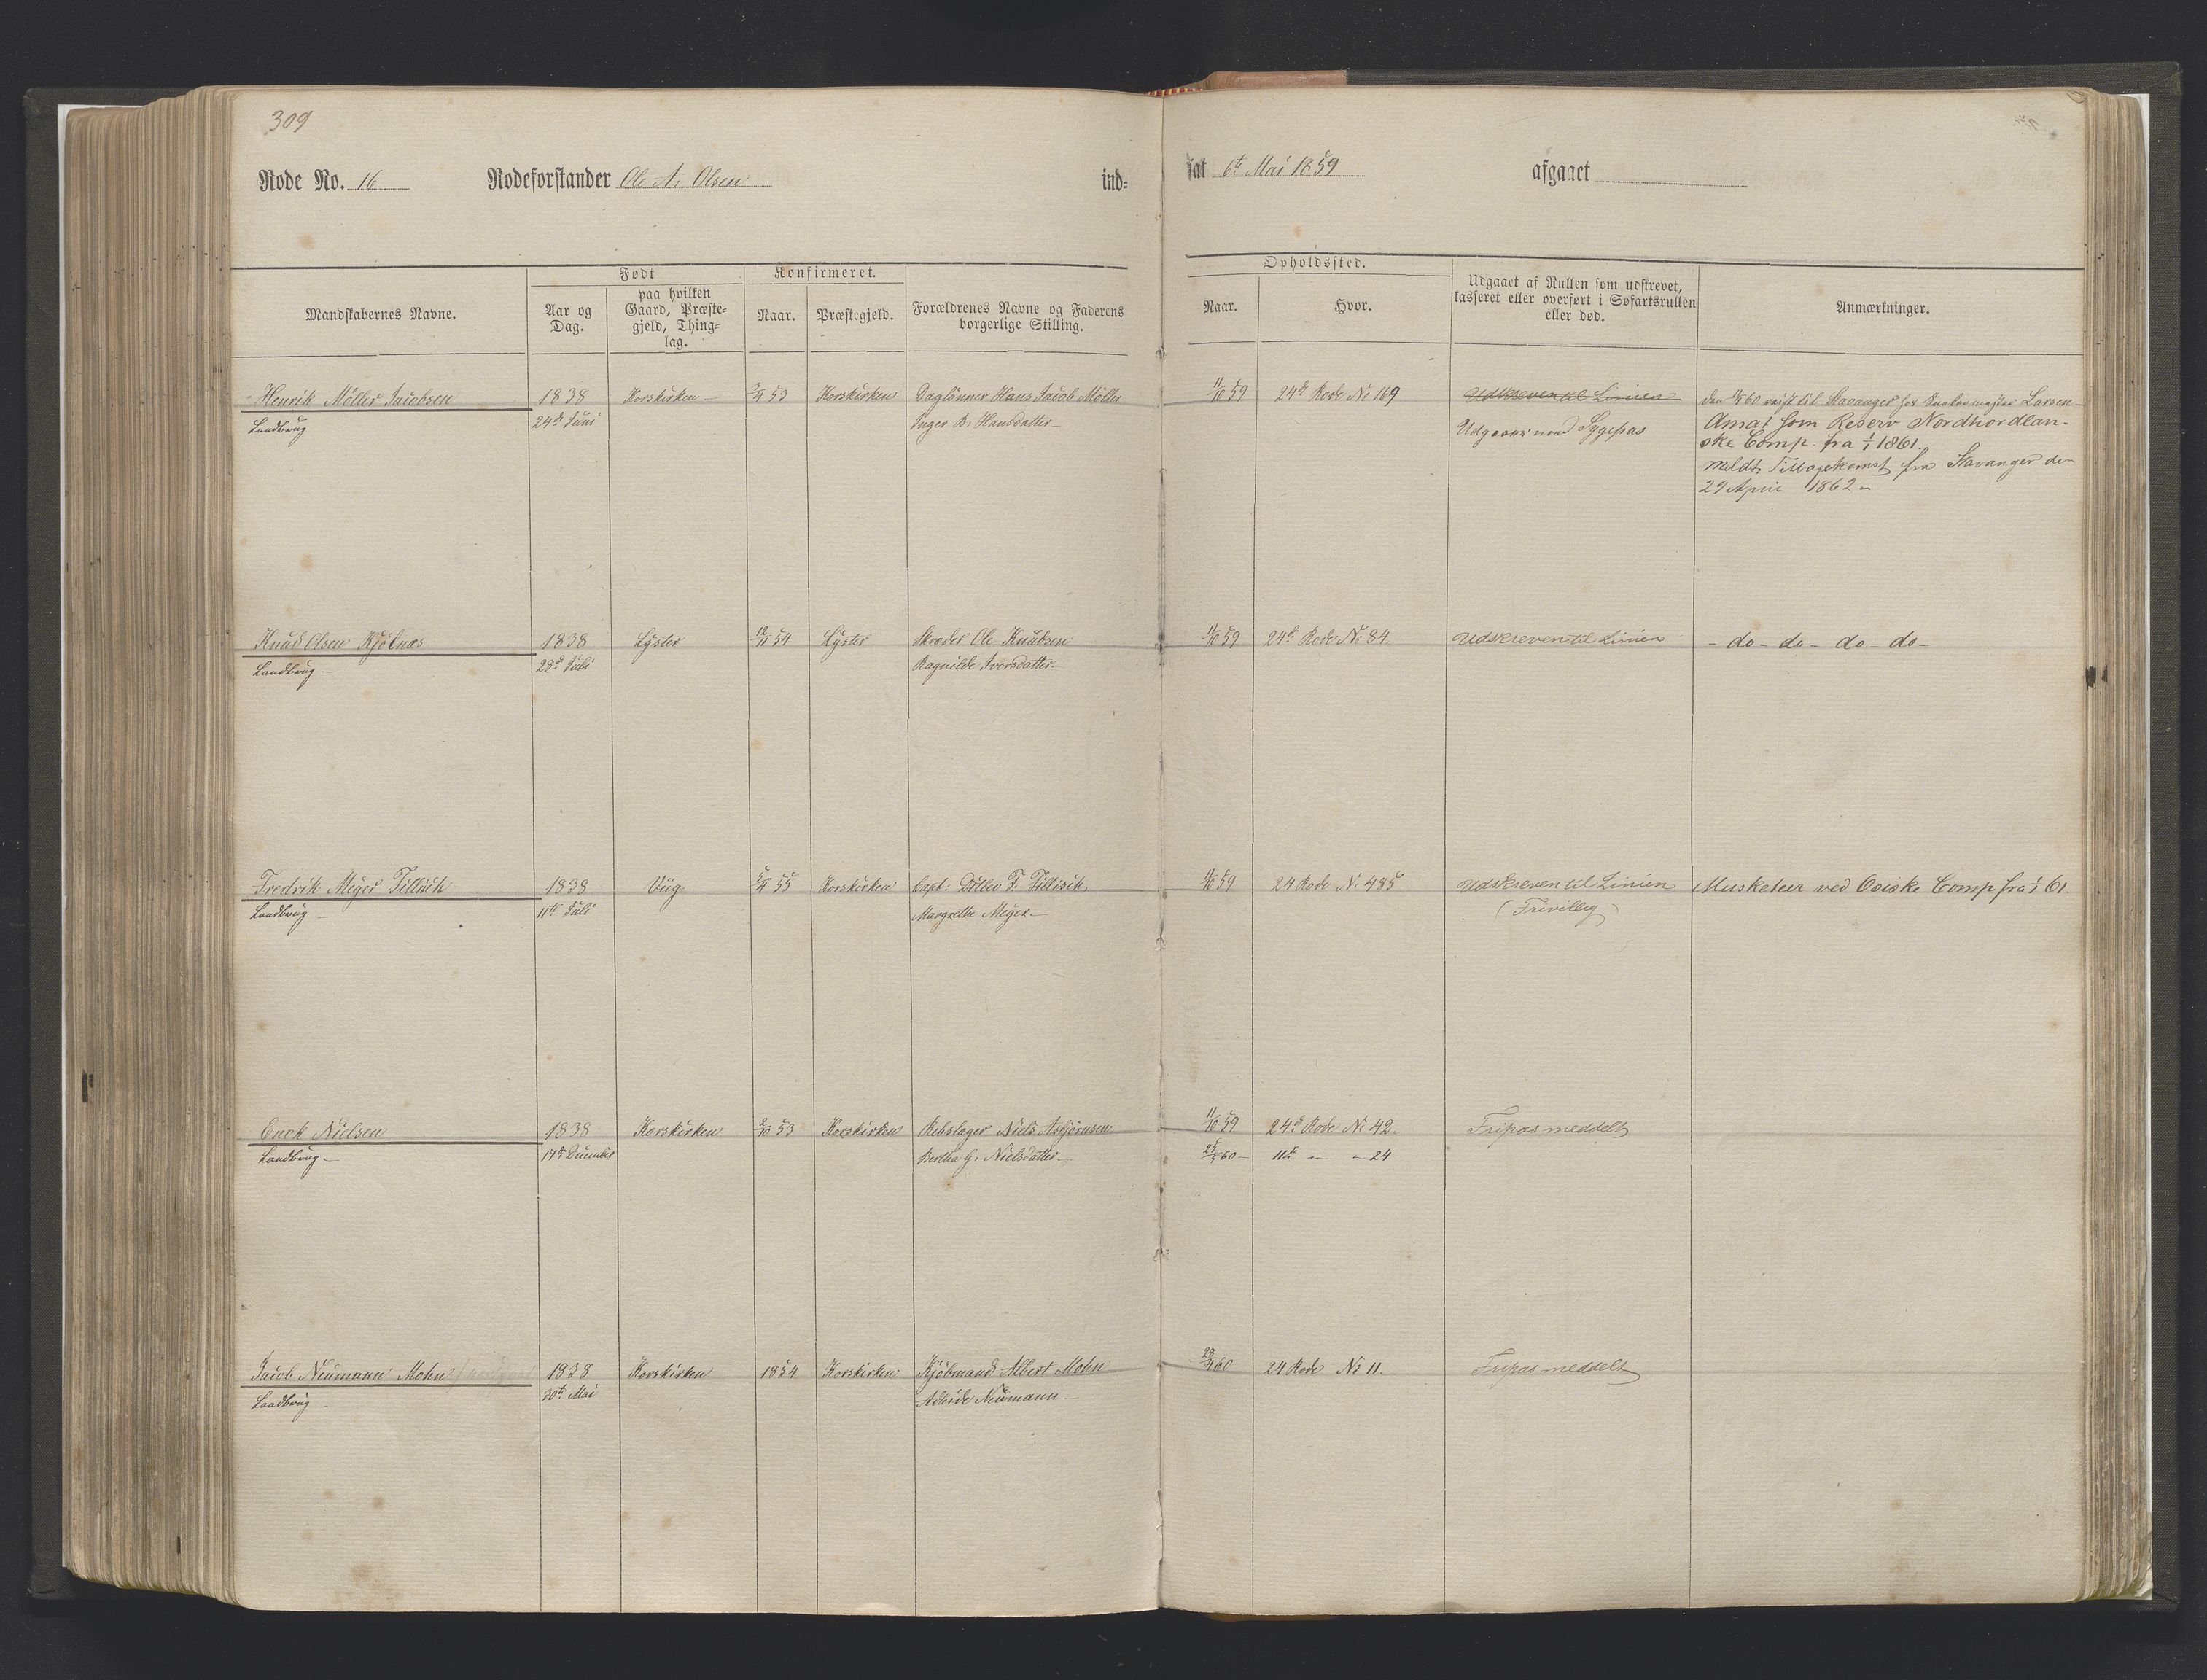 309
Rode No. 16 Rodeforstander Ole A. Olsen ind=
sat 6te Mai 1859 afgaaet
Mandskabernes Navne.
Født
Aar og Dag.
paa hvilken Gaard, Præste=gjeld, Thing=lag.
Konfirmeret.
Naar.
Præstegjeld.
Forældrenes Navne og Faderens borgerlige Stilling.
Opholdssted.
Naar.
Hvor.
Udgaaet af Rullen som udskrevet, kasseret eller overført i Søfartsrullen eller død.
Anmærkninger.
Henrik Möller Jacobsen 1838 Korskirken 53 Korskirken Daglönner Hans Jacob Möller 11/10 59 24de Rode No 169 Udskreven til Linien
Landbrug 24de Juni Inger B. Hansdatter Udgaaer med Sygepas
60 reist til Stavanger for Larsen
Ansat som Reserv Nordhordlan-
ske Comp. fra 1/1 1861.
Meldt Tilbagekomst fra Stavanger den
29 April 1862
Knud Olsen Kjölnæs 1838 Lyster 12/11 54 Lyster Skræder Ole Knudsen 11/10 59 24de Rode No 84 Udskreven til Linien - do - do - do - do -
Landbrug 28de Juli Ragnilde Iversdatter
Fredrik Meyer Tillisch 1838 Viig 55 Korskirken Capt: Ditlev F. Tillisch 59 24 Rode No 485 Udskreven til Linien Musketeer ved Osiske Comp fra 1/1 61.
Landbrug 11te Juli Margrethe Meyer (Frivillig)
Erick Nielsen 1838 Korskirken 2/10 53 Korskirken Rebslager Niels Asbjörnsen 11/10 59 24de Rode No 42 Fripas meddelt
Landbrug 17de December Bertha G. Nielsdatter 60 11te " " 24
Jacob Neumann Mohn 1838 Korskirken 1854 Korskirken Kjöbmand Albert Mohn 60 24 Rode No 11. Fripas meddelt
Landbrug 30te Mai Neumann